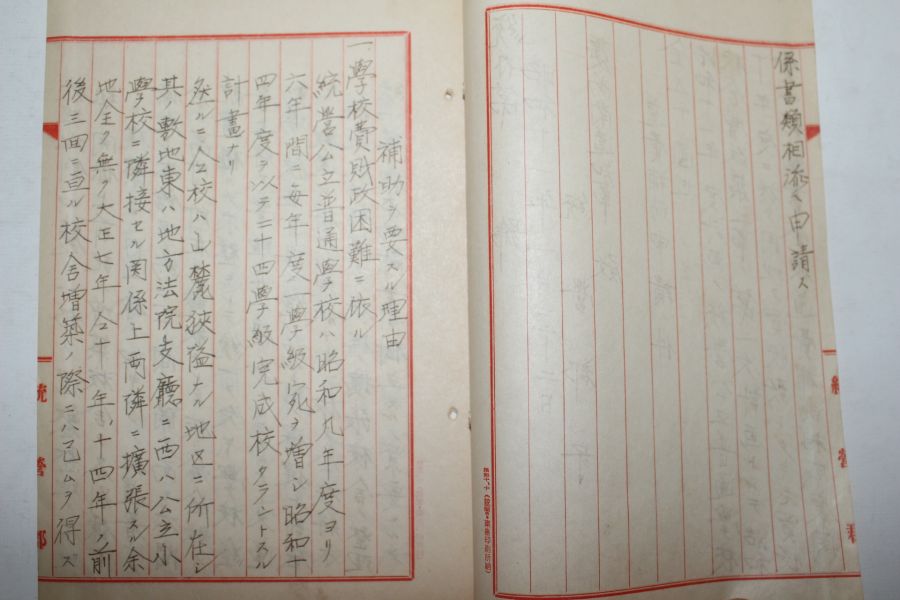 係書類相添へ申請ス
補助ヲ要スル理由
一學校費財政困難ニ依ル
統營公立普通學校ハ昭和九年度ヨリ
六年間ニ毎年度一學級宛ヲ増シ昭和十
四年度ヲ以テ二十四學級完成校タラントスル
計畫ナリ
然ルニ仝校ハ山麓狹隘ナル地区ニ所在シ
其ノ敷地東ハ地方法院支廳ニ西ハ公立小
學校ニ隣接セル関係上両隣ニ擴張スル余
地全ク無ク大正七年、仝十年、十四年ノ前
後三回ニ亘ル校舎増築ノ際ニハ已ムヲ得ズ
統營郡
統營郡